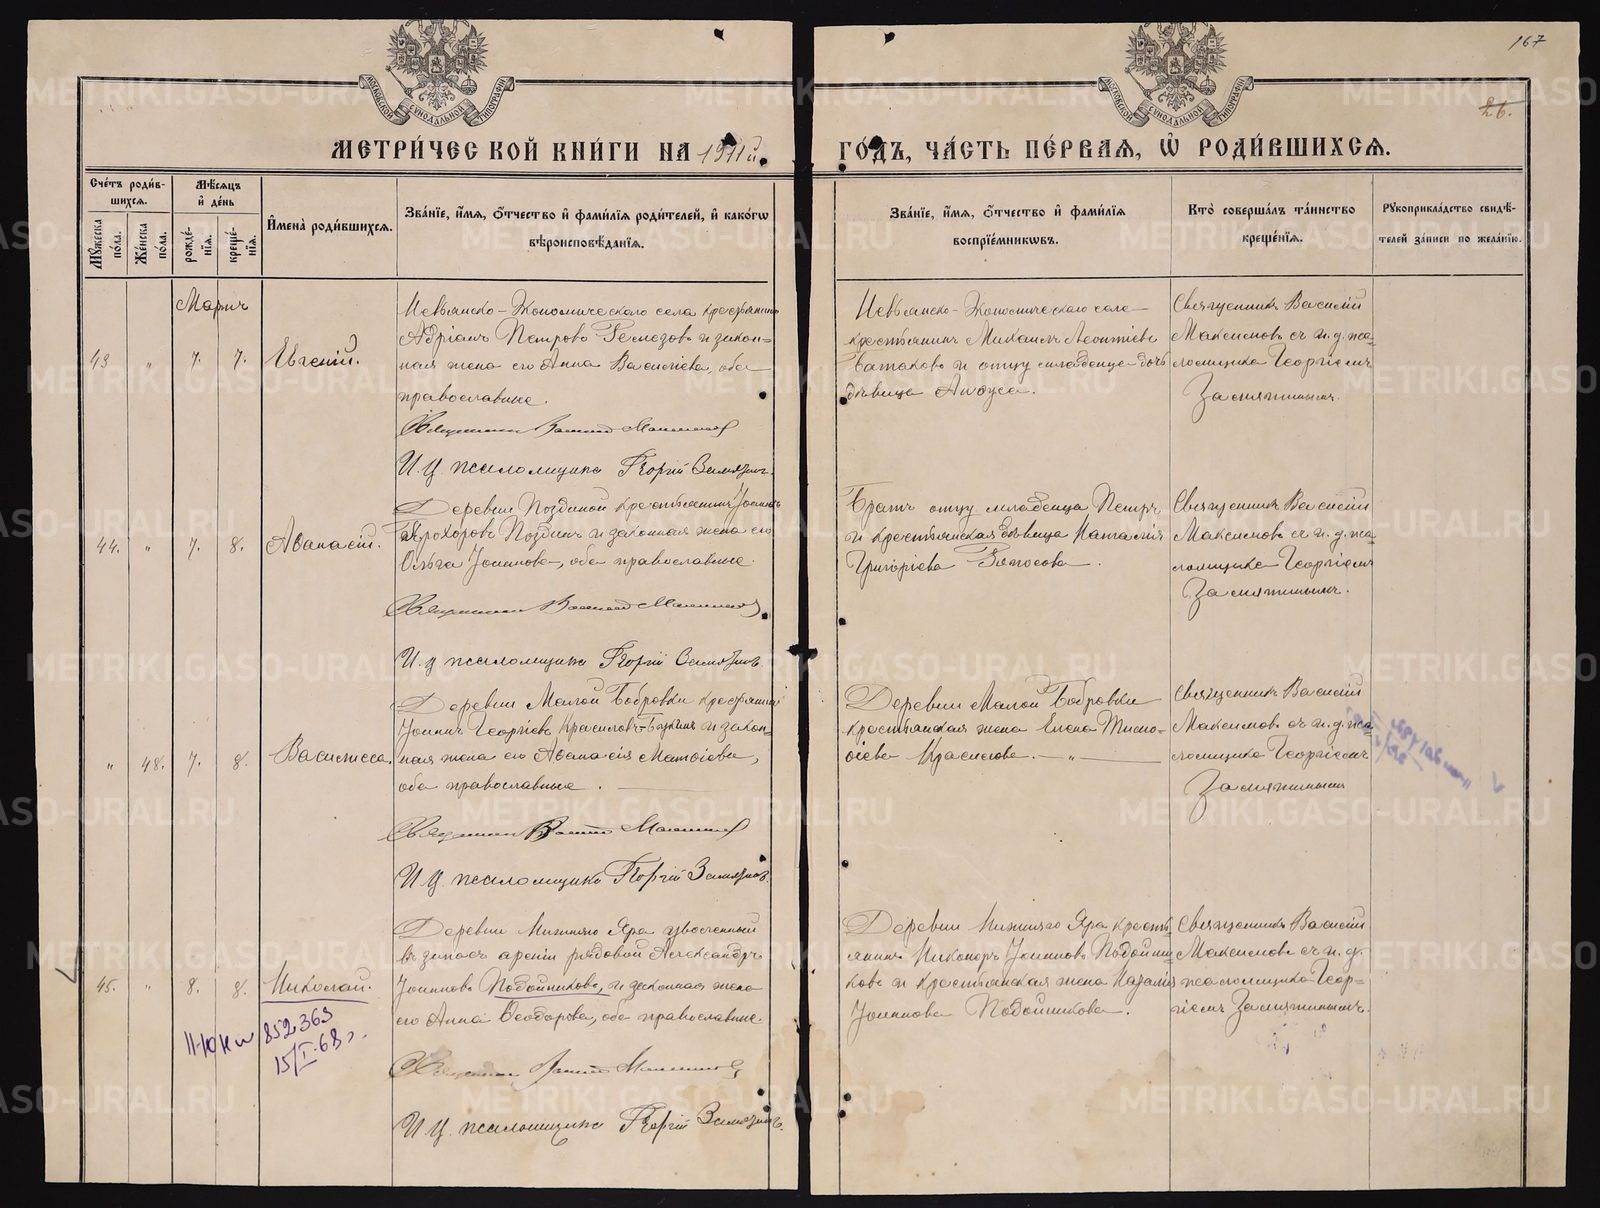 167
26.
МЕТРИ́ЧЕСКОЙ КНИ́ГИ НА 1911й
ГО́ДЪ, ЧА́СТЬ ПЕ́РВАЯ, Ѽ РОДИ́ВШИХСѦ.
Сче́тъ роди́вшихсѧ.
Мꙋ́жеска по́ла.
Же́нска по́ла.
Мѣ́сѧцъ и҆ де́нь
рожде́нїѧ.
креще́нїѧ.
И҆мена̀ роди́вшихсѧ.
Зва́нїе, и҆́мѧ, ѻ҆́тчество и҆ фами́лїѧ роди́телей, и҆ како́гѡ
вѣроисповѣ́данїѧ.
Зва́нїе, и҆́мѧ, ѻ҆́тчество и҆ фами́лїѧ
воспрїе́мникѡвъ.
Кто̀ соверша́лъ та́инство
креще́нїѧ.
Рꙋкоприкла́дство свидѣ́-
телей за́писи по жела́нїю.
Мартъ
43 " 7. 7. Евгеній.
Невьянско-Экономическаго села крестьянинъ
Адріанъ Петровъ и закон-
ная жена его Анна Васильева, оба
православные.
Священникъ Василій Максимовъ
И. д. псаломщика Георгій Замятинъ
Невьянско-Экономическаго села
крестьянинъ Михаилъ Леонтіевъ
и отцу младенца дочь
дѣвица
Священникъ Василій
Максимовъ съ и. д. пса-
ломщика Георгіемъ
Замятинымъ.
44. " 7. 8. Аѳанасій.
Деревни Поздиной крестьянинъ Іоаннъ
Прохоровъ Поздинъ и законная жена его
Ольга Іоаннова, оба православные.
Священникъ Василій Максимовъ
И. д. псаломщика Георгій Замятинъ
Братъ отцу младенца Петръ
и крестьянская дѣвица Наталія
Григоріева
Священникъ Василій
Максимовъ съ и. д. пса-
ломщика Георгіемъ
Замятинымъ.
" 48. 7. 8. Василисса.
Деревни Малой Бобровки крестьянинъ
Іоаннъ Георгіевъ Красиловъ и закон-
ная жена его Аѳанасія Матѳіева,
оба православные.
Священникъ Василій Максимовъ
И. д. псаломщика Георгій Замятинъ.
Деревни Малой Бобровки
крестьянская жена Елена Тимо-
ѳіева Красилова. — " —
Священникъ Василій
Максимовъ съ и. д. пса-
ломщика Георгіемъ
Замятинымъ
45. " 8. 8. Николай.
II-ЮН № 852363
15/I-68 г.
Деревни Нижняго Яра уволенный
въ запасъ арміи рядовой Александръ
Іоанновъ Подойниковъ, и законная жена
его Анна Ѳеодорова, оба православные.
Священникъ Василій Максимовъ
И. д. псаломщика Георгій Замятинъ.
Деревни Нижняго Яра кресть-
янинъ Никаноръ Іоанновъ Подойни-
ковъ и крестьянская жена
Іоаннова Подойникова.
Священникъ Василій
Максимовъ съ и. д.
псаломщика Геор-
гіемъ Замятинымъ.